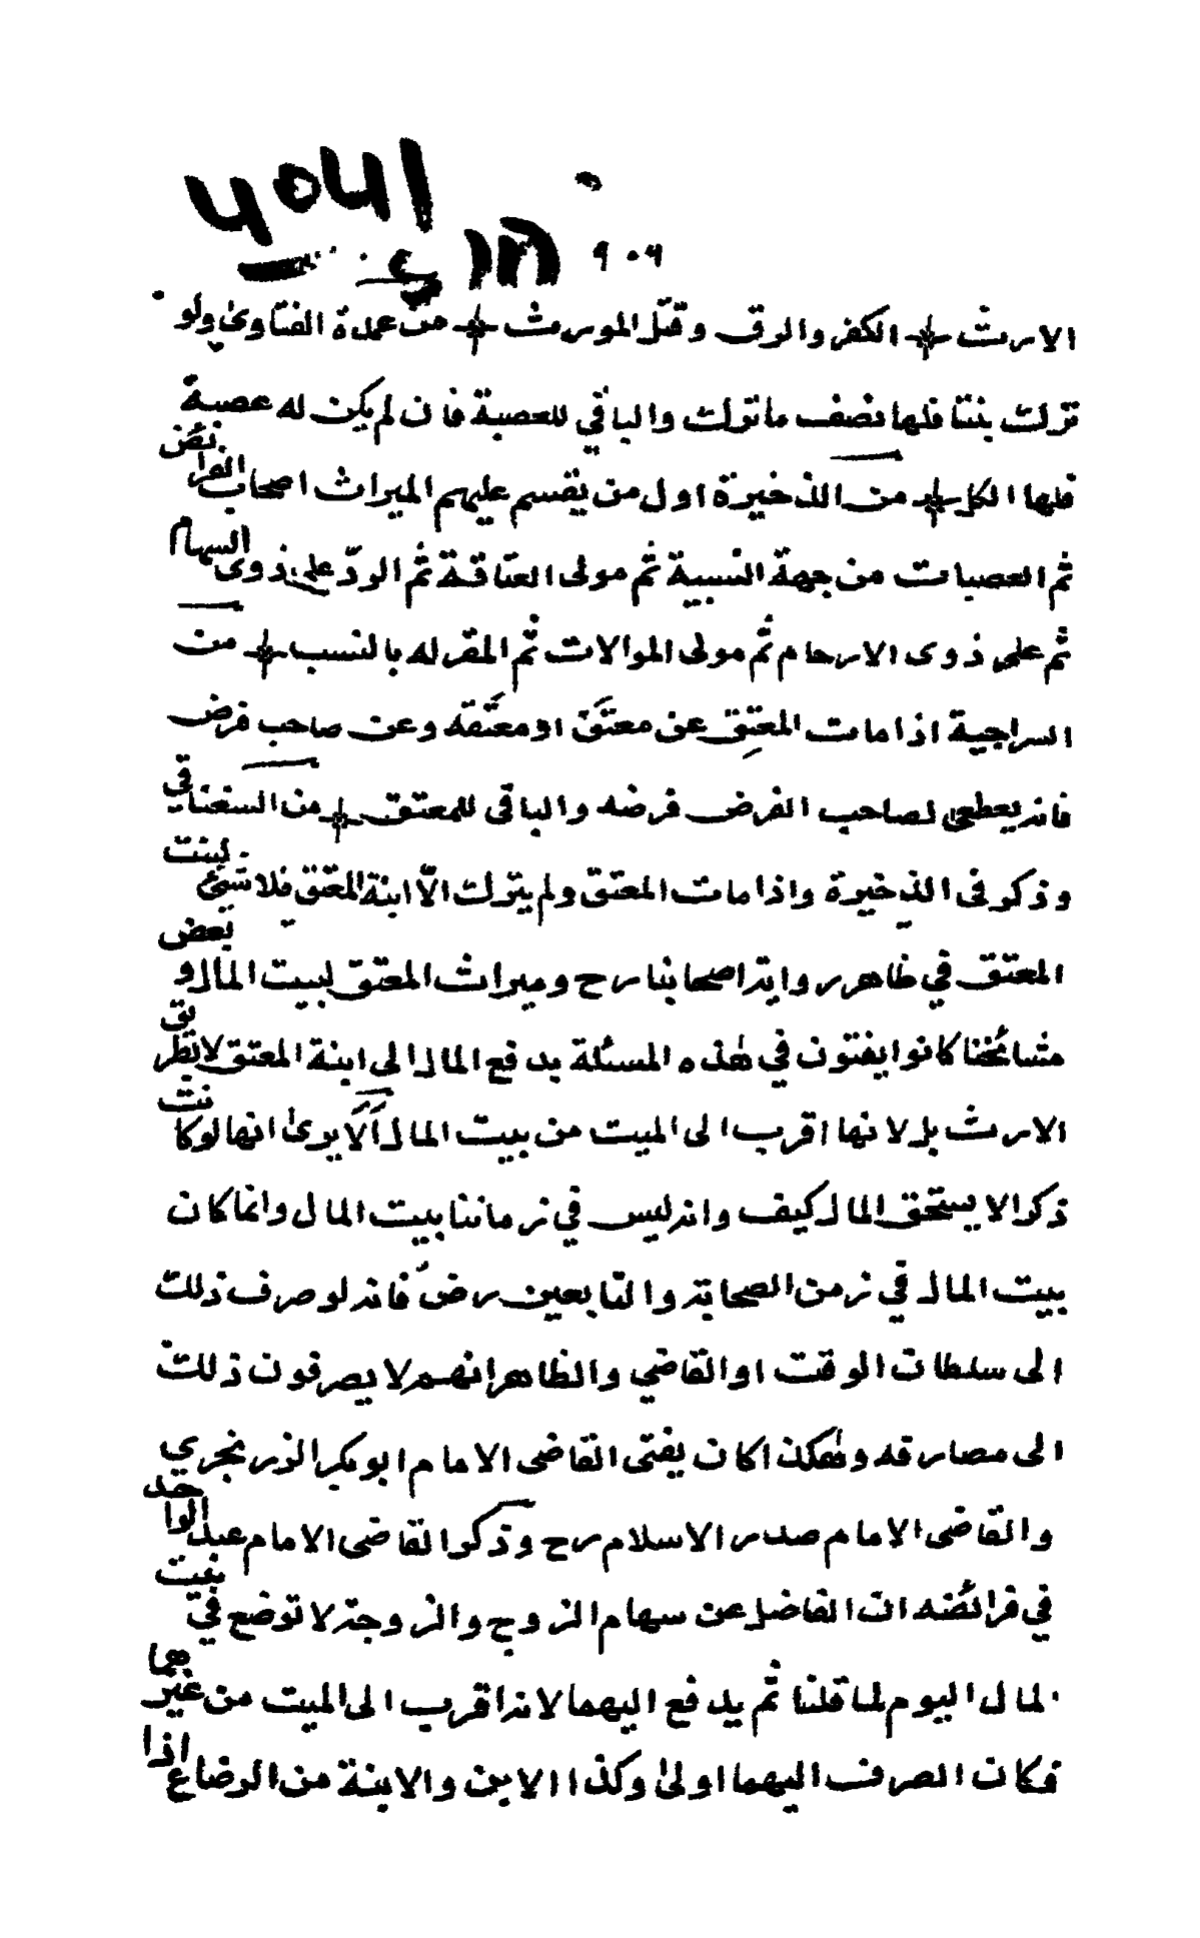 ٩٠٦
الارث الكفر والرق وقتل المورث من عمدة الفتاوى ولو
ترك بنتا فلها نصف ما ترك والباقي للعصبة فان لم يكن له عصبة
فلها الكل من الذخيرة اول من يقسم عليهم الميراث اصحاب الفرائض
ثم العصبات من جهة النسبية ثم مولى العتاقة ثم الردّ على ذوى السهام
ثم على ذوى الارحام ثم مولى الموالات ثم المقر له بالنسب من
السراجية اذا مات المعتِق عن معتَق او معتَقه وعن صاحب فرض
فانه يعطى لصاحب الفرض فرضه والباقى للمعتق من السغناقي
وذكر فى الذخيرة واذا مات المعتق ولم يترك الّا ابنة المعتق فلا شيئ لبنت
المعتق في ظاهر رواية اصحابنا رح وميراث المعتق لبيت المال و بعض
مشائخنا كانوا يفتون في هذه المسئلة بدفع المال الى ابنة المعتق لا بطريق
الارث بل لانها اقرب الى الميت من بيت المال اَلَا يرى انها لو كانت
ذكرا لا يستحق المال كيف وانه ليس في زماننا بيت المال وانما كان
بيت المال في زمن الصحابة والتابعين رض فانه لو صرف ذلك
الى سلطان الوقت او القاضي والظاهر انهم لا يصرفون ذلك
الى مصارفه وهكذا كان يفتى القاضى الامام ابو بكر الزرنجري
والقاضى الامام صدر الاسلام رح وذكر القاضى الامام عبد الواحد
في فرائضه ان الفاضل عن سهام الزوج والزوجة لا توضع في بيت
المال اليوم لما قلنا ثم يدفع اليهما لانه اقرب الى الميت من غيرهما
فكان الصرف اليهما اولى وكذا الابن والابنة من الرضاع اذا